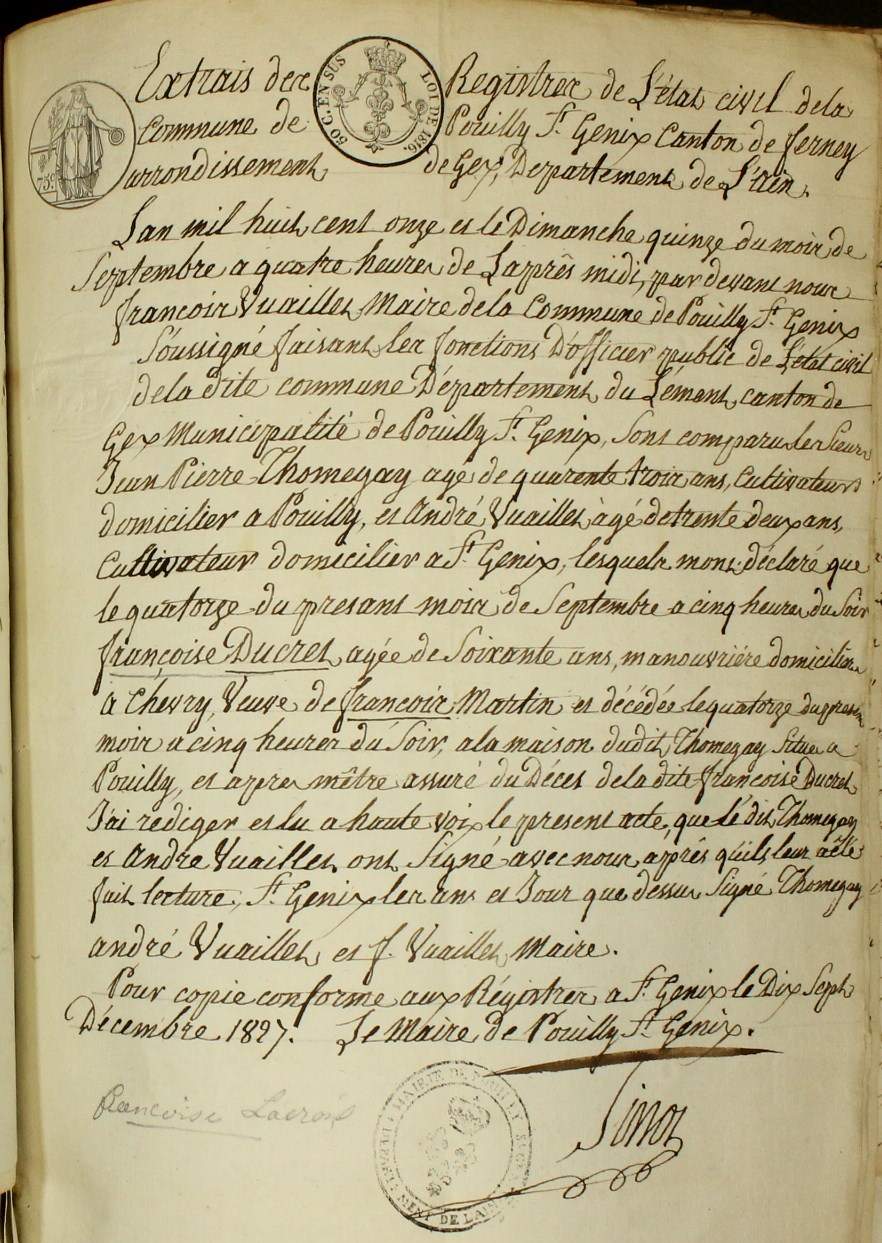 75c
50 C. EN SUS LOI DE 1816.
Extrais des Registres de L'état civil dela
commune de Pouilly St. Genix Canton de ferney
arrondissement de Gex, Departement de L'Ain.
Lan mil huit cent onze et le Dimanche quinze du mois de
Septembre a quatre heures de Laprês midi, par devant nous
françois Vuaillet Maire dela Commune de Pouilly St. Genix
Soussigné faisant les fonctions D'officier public de L'état civil
dela dite commune Département du Lément, canton de
Gex Municipalité de Pouilly St. Genix, Sont comparu les Sieurs
Jean Pierre Thomegay agé de quarente trois ans, Cultivateur
domicilier a Pouilly, et André Vuaillet àgé de trente deux ans,
Cultivateur domicilier a St. Genix, lesquels mont déclaré que
le quatorze du presant mois de Septembre a cinq heures du Soir
françoise Ducret, agée de Soixante ans, manouvriére domiciliée
a Chevry, Veuve de françois Martin est décédée le quatorze du presen
mois a cinq heures du Soir, a la maison dudit Thomegay Situe a
Pouilly, et apres mêtre assuré du Déces dela dite françoise Ducret
J'ai rediger et lu a haute voix le present acte, que le dit Thomegay
et Andre Vuaillet, ont Signé avec nous aprés qu'ils leur a été
fait lecture, St. Genix les ans et Jour que dessus Signé Thomegay
andré Vuaillet et f. Vuaillet Maire.
Pour copie conforme aux Régistres a St. Genix le Dix Sept
Décembre 1827. Le Maire de Pouilly St. Genix.
francoise Lacroix
MAIRIE DE POUILLY ST GENIX DEPARTEMENT DE L'AIN